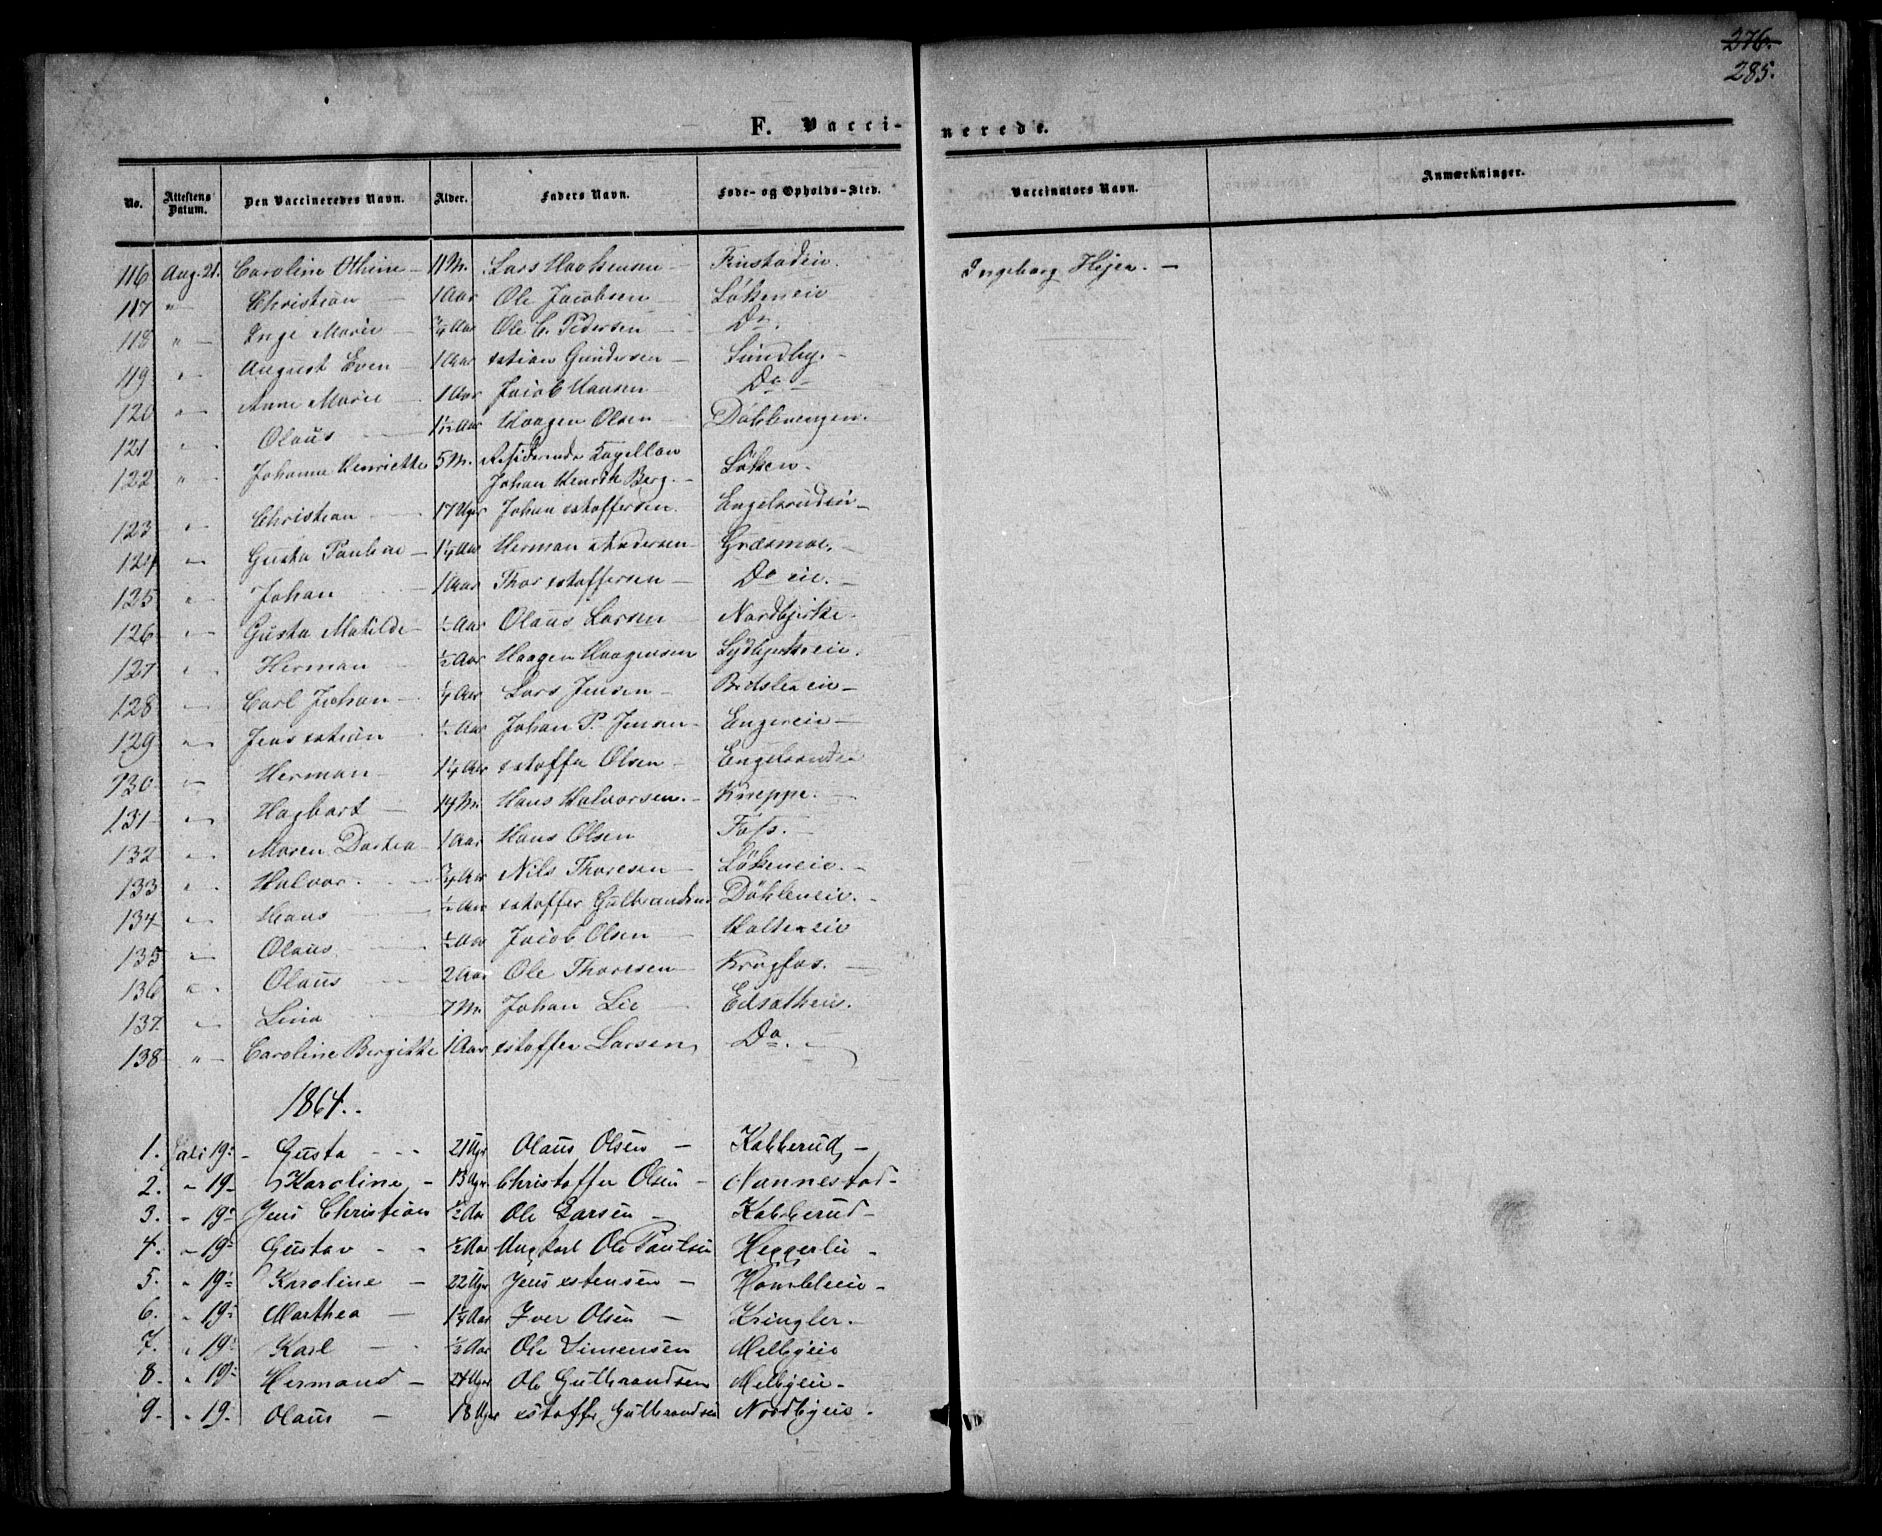 276.
285.
F. Vaccinerede.
No. Attestens Datum. Den Vaccineredes Navn. Alder. Faders Navn. Føde- og Opholds-Sted. Vaccinators Navn. Anmærkninger.
116 Aug. 21. Caroline Othine 11 M. Lars Finstadeie. Ingeborg Hejer. —
117 " Christian — 1 Aar Ole Jacobsen — Løkeneie
118 " — Inge Marie — 3/4 Aar Ole C. Pedersen — Do.
119 " August Even — 1 Aar xstian Gundersen — Sundby. —
120 " Anne Marie — 1 Aar Jacob Hansen — Do —
121 " Olaus — 1 1/2 Aar Haagen Olsen — Døhlenengen.
122 " Johanne Henriette 5 M. Residerende Capellan
Johan Henrik Berg. — Løken.
123 " Christian — 17 Uger Johan xstoffersen. Engelsrudeie —
124 " Gusta Pauline — 1 1/4 Aar Herman Andersen — Græsmoe. —
125 " Johan 1 Aar Thor xstoffersen — Do eie. —
126 " Gusta Matilde — 1/2 Aar Olaus Larsen — Nordbjerke.
127 " Herman 1/2 Aar Haagen Haagensen Sydbjerkeeie.
128 " Carl Johan — 1/4 Aar Lars Jensen —
129 " Jens xstian 1/2 Aar Johan P. Jensen — Engereie —
130 " Herman — 1 1/4 Aar xstoffer Olsen — Engelsrudeie
131 " Hagbart — 14 M. Hans Halvorsen. — Kneppe. —
132 " Maren Dortea — 1 Aar Hans Olsen Fofs. —
133 " Halvor. 3/4 Aar Nils Thoresen — Løkeneie. —
134 " Hans 1/2 Aar xstoffer Gulbrandsen Døhleneie. —
135 " Olaus 1/2 Aar Jacob Olsen — Holteneie
136 " Olaus — 2 Aar Ole Thoresen — Krogfos. —
137 " Lina — 7 M. Johan Lie —
138 " Caroline Bergitte 1 Aar xstoffer Larsen, Do. —
1864.
1. Juli 19 — Gusta — 21 Uger Olaus Olsen — Kabberud, —
2. " 19 — Karoline, — 13 Uger Christoffer Olsen — Nannestad —
3. " 19 Jens Christian 1/2 Aar Ole Larsen — Kabberud —
4. " 19 Gustav — 1/2 Aar Ungkarl Ole Paulsen Heggerlie —
5. " 19 Karoline — 22 Uger Jens xstensen —
6. " 19 Marthea — 1 1/4 Aar Iver Olsen — Kringler. —
7. " 19 Karl — 1/2 Aar Ole Simensen Melbyeie
8. " 19 Hermand — 24 Uger Ole Gulbrandsen Melbyeie —
9. " 19. Olaus — 18 Uger xstoffer Gulbrandsen Nordbyeie.